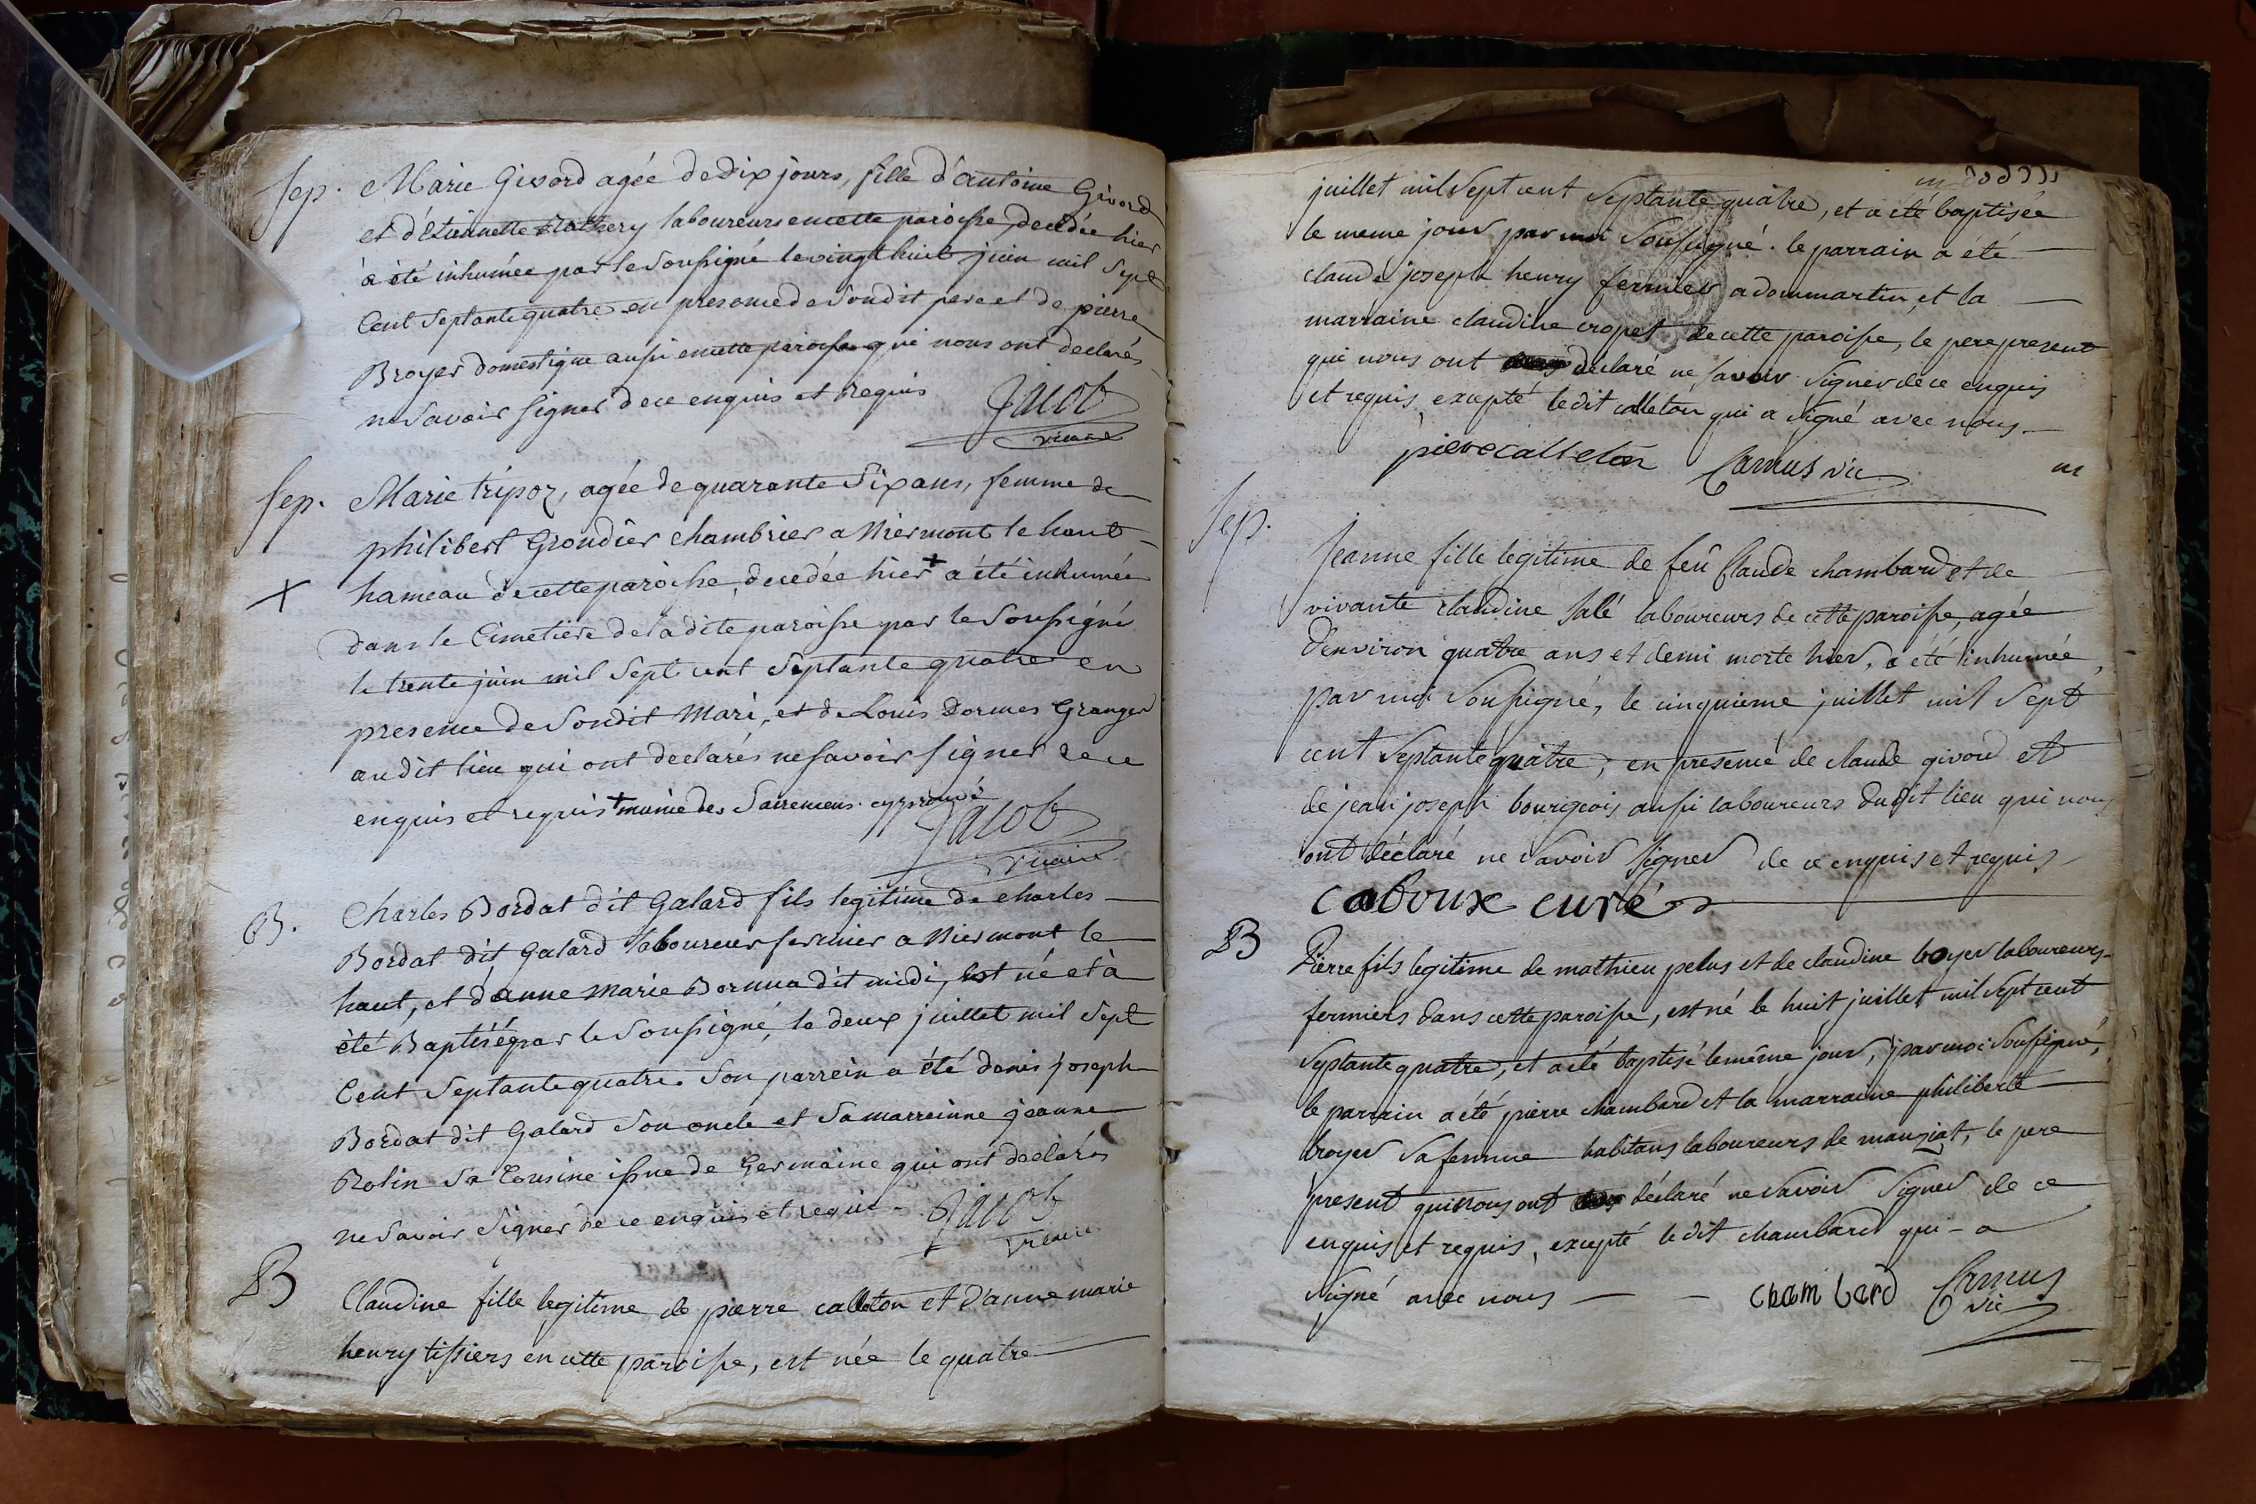 Sep. Marie Givord agée de dix jours, fille d'antoine Givord
et d'Etiennette laboureurs en cette paroisse decedée hier
à été inhumée par le Soussigné le vingt huit juin mil Sept
Cent Septante quatre en presence de Sondit pere et de pierre
Broyer domestique aussi en cette paroisse qui nous ont declarés
ne Savoir signer de ce enquis et Requis Jacob
vicaire
Sep. Marie tripoz, agée de quarante Six ans, femme de
philibert Grondier chambrier a Niermont le haut
X hameau de cette paroisse, decedée hier + a été inhumée
dans le Cimetiére de la dite paroisse par le Soussigné
le trente juin mil Sept cent Septante quatre en
presence de Sondit Mari, et de Louis Dormes Granger
audit lieu qui ont declarés ne savoir signer de ce
enquis et requis + munie des Sacremens. approuvé
Jacob
vicaire
B. Charles Bordat dit Galard fils legitime de charles
Bordat dit Galard laboureur fermier a Niermont le
haut, et d'anne Marie dit midi, est né et à
été Baptisé par le Soussigné, le deux juillet mil Sept
Cent Septante quatre. Son parrein a été denis joseph
Bordat dit Galard Son oncle et Sa marreinne jeanne
Rolin Sa Cousine issue de Germaine qui ont declarés
ne Savoir Signer de ce enquis et requis - Jacob
vicaire
B Claudine fille legitime de pierre calleton et d'anne marie
henry tissiers en cette paroisse, est née le quatre
juillet mil Sept cent Septante quatre, et a été baptisée
le meme jour par moi Soussigné. le parrain a été
claude joseph henry fermier a dommartin, et la
marraine claudine cropet de cette paroisse, le pere present
qui nous ont déclaré ne savoir Signer de ce enquis
et requis, excepté le dit calleton qui a signé avec nous
pierre calleton Camus vic
Sep. Jeanne fille legitime de feû Claude chambard et de
vivante claudine Salé laboureurs de cette paroisse, agée
d'environ quatre ans et demi morte hier, a été inhumée
par moi Soussigné, le cinquieme juillet mil Sept
cent Septante quatre, en presence de claude givord et
de jean joseph bourgeois aussi laboureurs dudit lieu qui nous
ont déclaré ne Savoir signer de ce enquis et requis
caboux curé
B Pierre fils legitime de mathieu pelus et de claudine boyer laboureurs
fermiers dans cette paroisse, est né le huit juillet mil Sept cent
Septante quatre, et a été baptisé le même jour, par moi Soussigné,
le parrain a été pierre chambard et la marraine philiberte
broyer Sa femme habitans laboureurs de manziat, le pere
present qui nous ont déclaré ne Savoir Signer de ce
enquis et requis, excepté le dit chambard qui - a
signé avec nous - - chambard Camus
vic